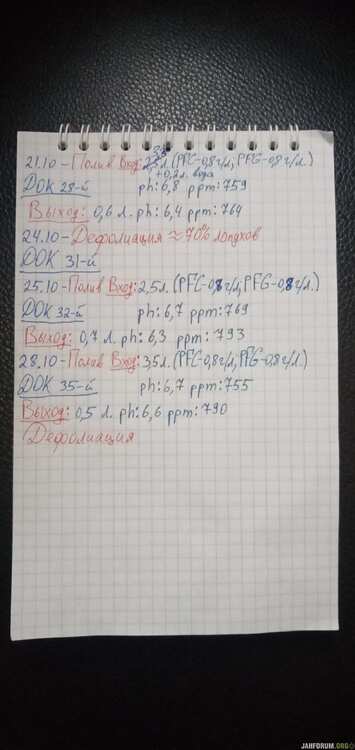 21.10 - Полив Вход: л. (PFC-0,8г/л; PFG-0,8г/л.)
+0,2л. вода
ДОК 28-й ph: 6,8 ppm: 759
Выход: 0,6 л. ph: 6,4 ppm: 764
24.10 - Дефолиация ≈ 70% лопухов
ДОК 31-й
25.10 - Полив Вход: 2,5л. (PFC-0,8г/л, PFG-0,8г/л.)
ДОК 32-й ph: 6,7 ppm: 769
Выход: 0,7 л. ph: 6,3 ppm: 793
28.10 - Полив Вход: 3,5л. (PFC-0,8г/л, PFG-0,8г/л.)
ДОК 35-й ph: 6,7 ppm: 755
Выход: 0,5 л. ph: 6,6 ppm: 790
Дефолиация
JAHFORUM.ORG